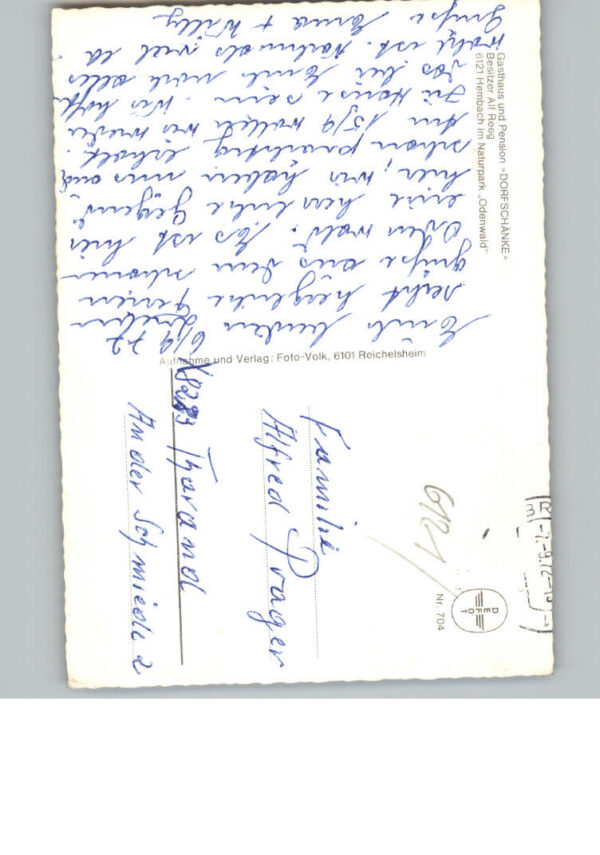 Gasthaus und Pension »DORFSCHÄNKE«
Besitzer Alf Reeg
6121 Hembach im Naturpark „Odenwald"
6/9 72
Euch beiden Lieben
herzliche Ferien
grüße aus dem schönen
Odenwald. Es ist hier
eine herrliche Gegend
hier, wir haben uns auch
schon prächtig erholt.
Am 15/9 wollen wir wieder
zu Hause sein. Wir hoff.
das bei Euch noch alles
wohl ist. Nochmals viel lb
Grüße Erna + Willy
Aufnahme und Verlag: Foto-Volk, 6101 Reichelsheim
DEFOT
Nr. 704
6121
Familie
Alfred Prager
X8223 Tharand
An der Schmiede 2